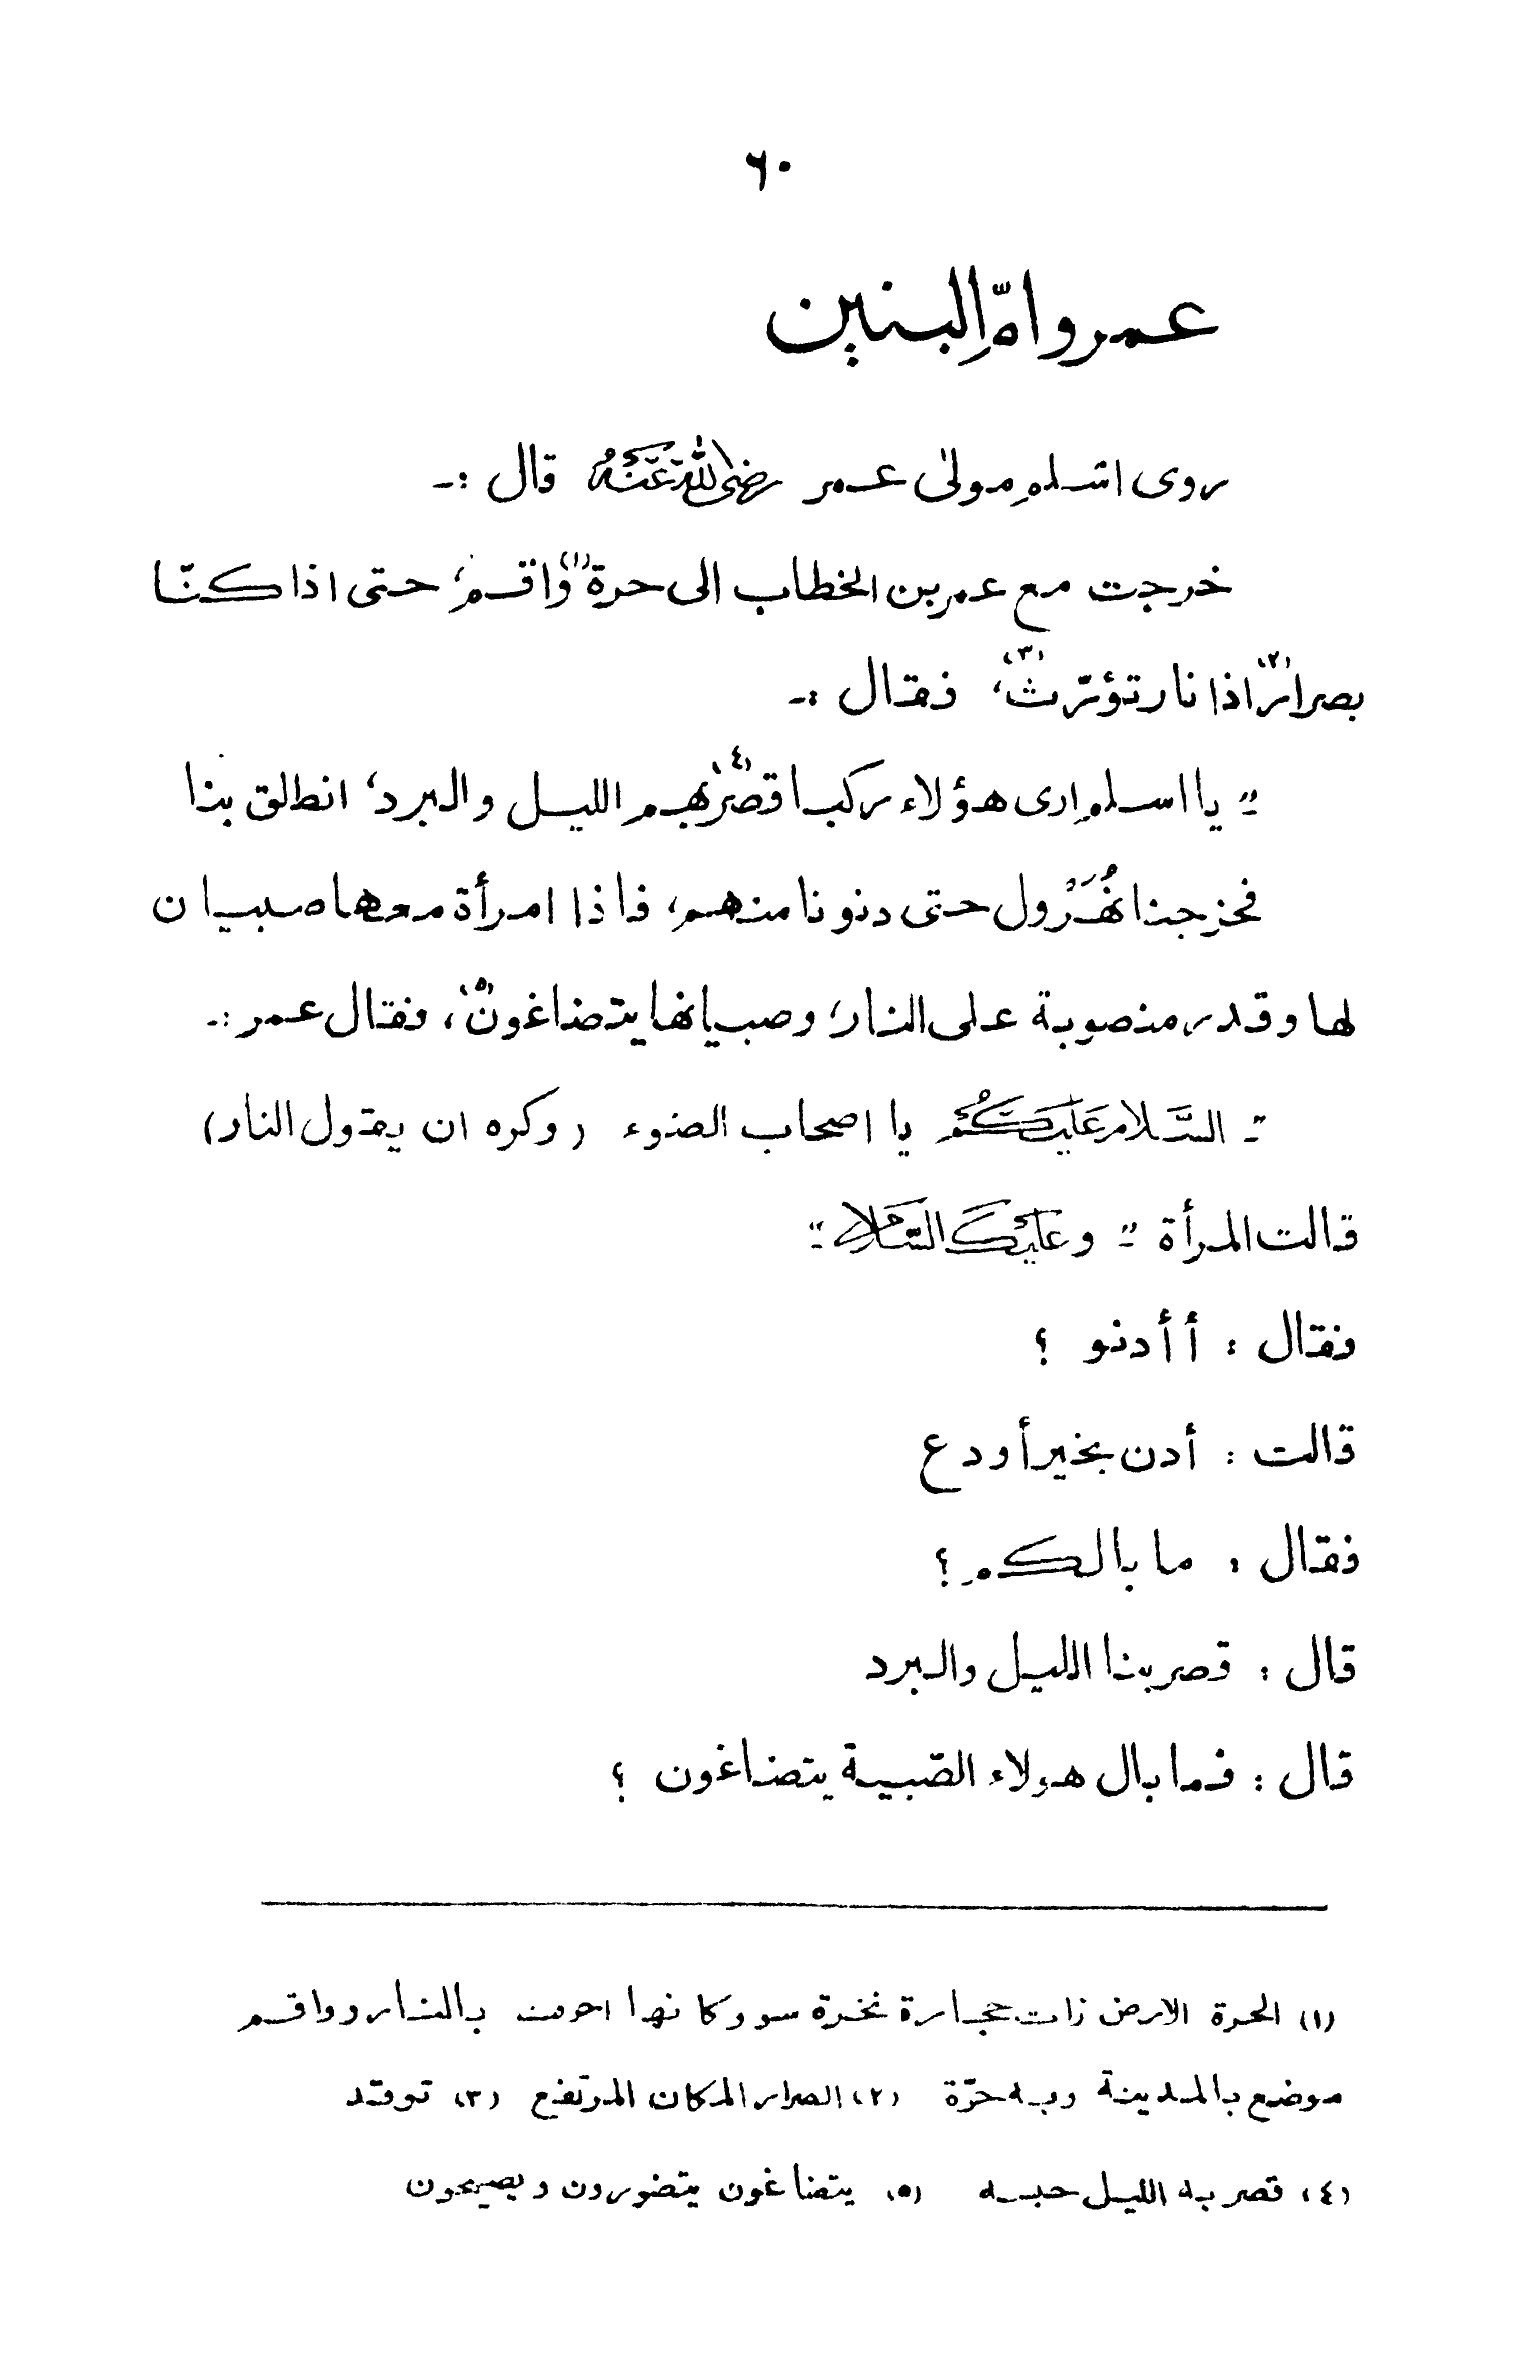 ٦٠
عمر وامّ البنين
روى اسلم مولى عمر رضي الله عنه قال :ـ
خرجت مع عمر بن الخطاب الى حرة (١) واقم، حتى اذا كنّا
بصرار (٢) اذا نار تؤرّث (٣)، فقال :ـ
ـ" يا اسلم ارى هؤلاء ركبا قصر (٤) بهم الليل والبرد، انطلق بنا
فخرجنا نُهَرْوِل حتى دنونا منهم، فاذا امرأة معها صبيان
لها وقدر منصوبة على النار، وصبيانها يتضاغون (٥)، فقال عمر :ـ
ـ" السَّلام عَلَيكُم يا اصحاب الضوء (وكره ان يقول النار)
قالت المرأة ـ" وعَلَيْكَ السَّلام "ـ
فقال : أ أدنو ؟
قالت : أدن بخير أو دع
فقال : ما بالكم ؟
قال : قصر بنا الليل والبرد
قال : فما بال هؤلاء الصّبية يتضاغون ؟
(١) الحرة الارض ذات حجارة نخرة سود وكانها احرمت بالنار وواقم
موضع بالمدينة وبه حرّة (٢) الصرار المكان المرتفع (٣) توقد
(٤) قصر به الليل حبسه (٥) يتضاغون يتضورون ويصيحون